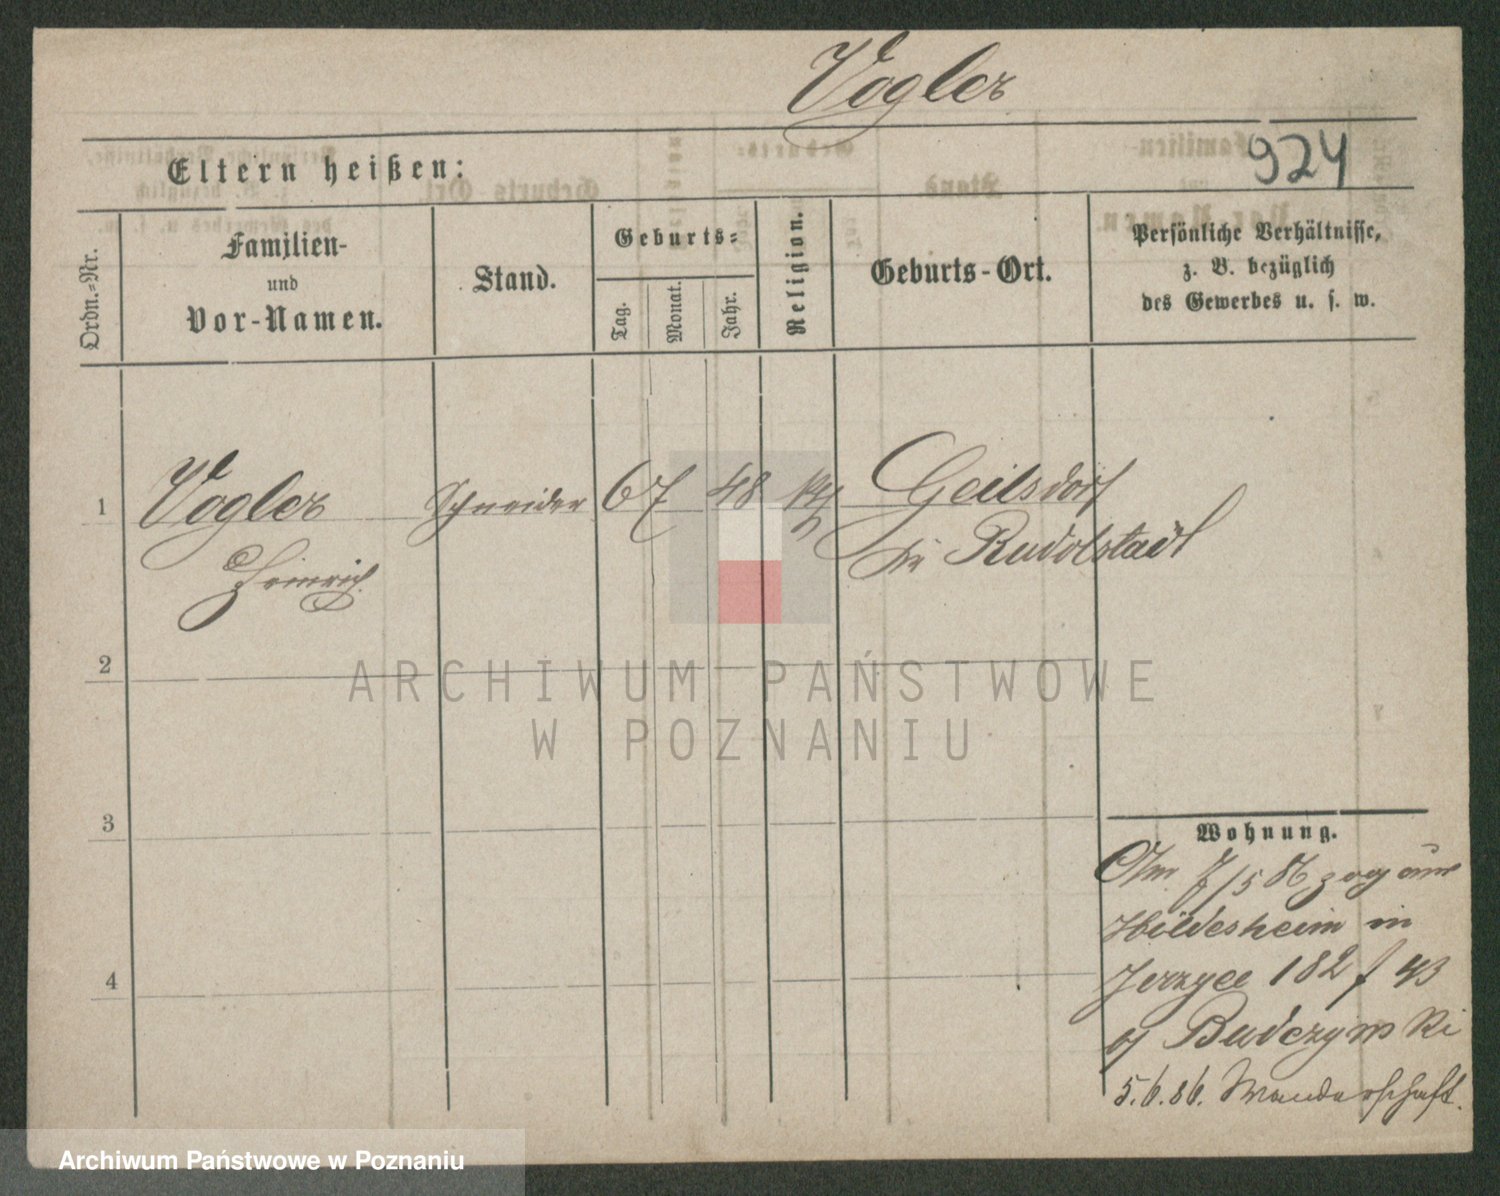 Vogler
924
Eltern heißen:
Ordn.-Nr.
Familien-
und
Vor-Namen.
Stand.
Geburts-
Tag.
Monat.
Jahr.
Religion.
Geburts-Ort.
Persönliche Verhältnisse,
z. B. bezüglich
des Gewerbes u. s. w.
1 Vogler Schneider 6 7 48 Geilsdorf
Heinrich Rudolstadt
2
ARCHIWUM PAŃSTWOWE
W POZNANIU
3
4
Wohnung.
Am 7/5 86 zog aus
Hildesheim in
Jerzyce 182 f 43
Budczynski
5.6.86. Wanderschaft.
Archiwum Państwowe w Poznaniu